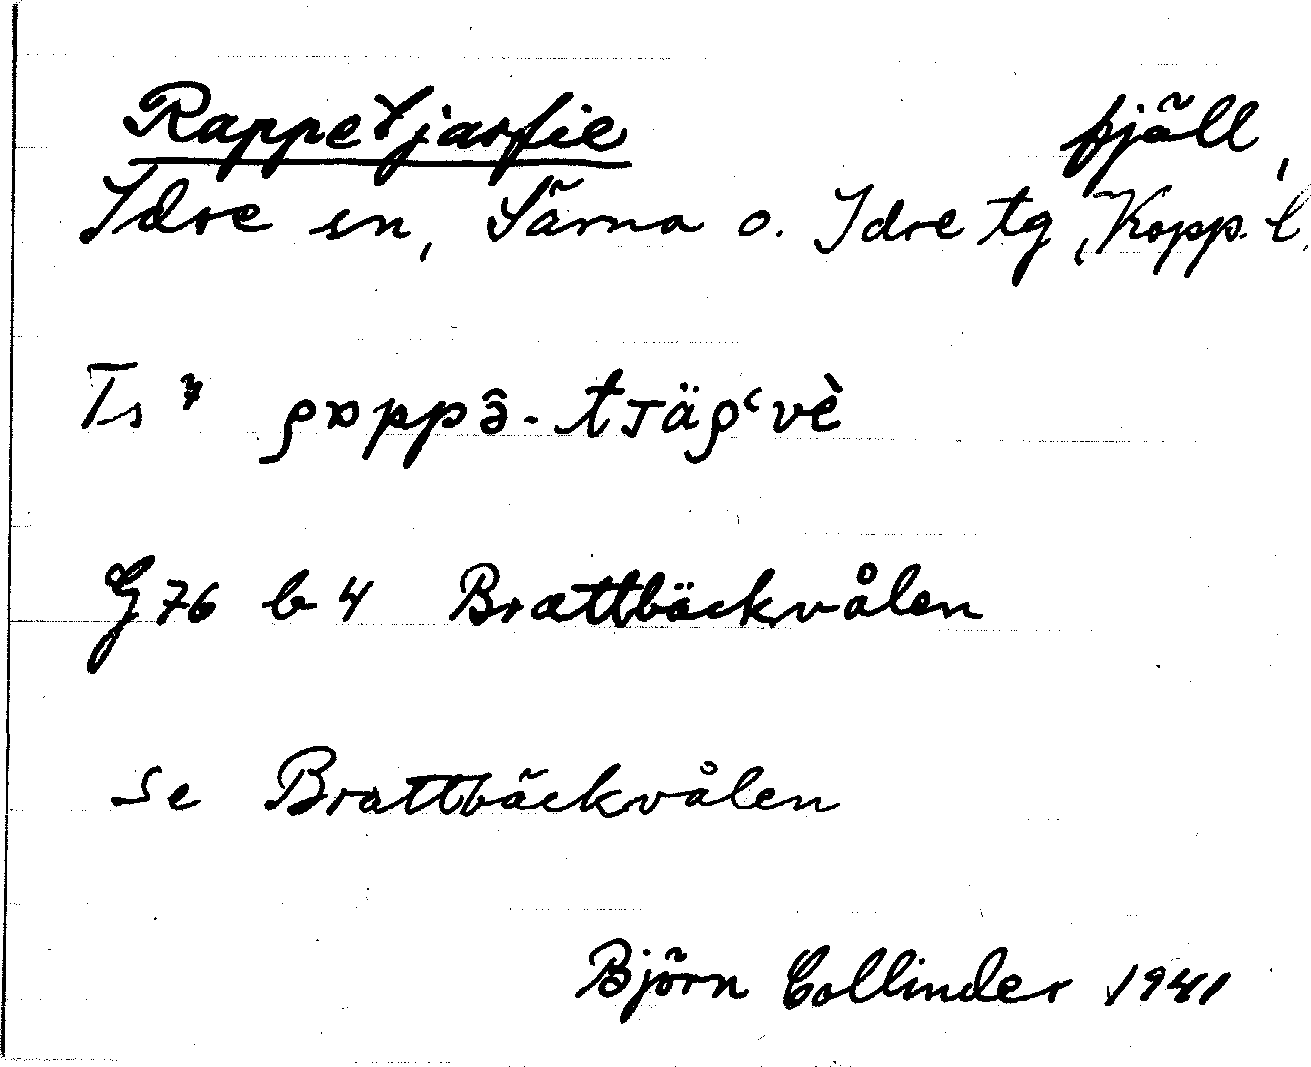 Rappetjasfie fjäll,
Idre sn, Särna o. Idre tg, Kopp. l.
Ts
G 76 b 4 Brattbäckvålen
Se Brattbäckvålen
Björn Collinder 1941